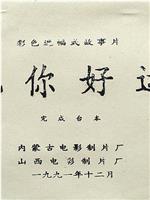 彩色遮幅式故事片
你好
完成台本
内蒙古电影制片厂
山西电影制片厂
一九九一年十二月